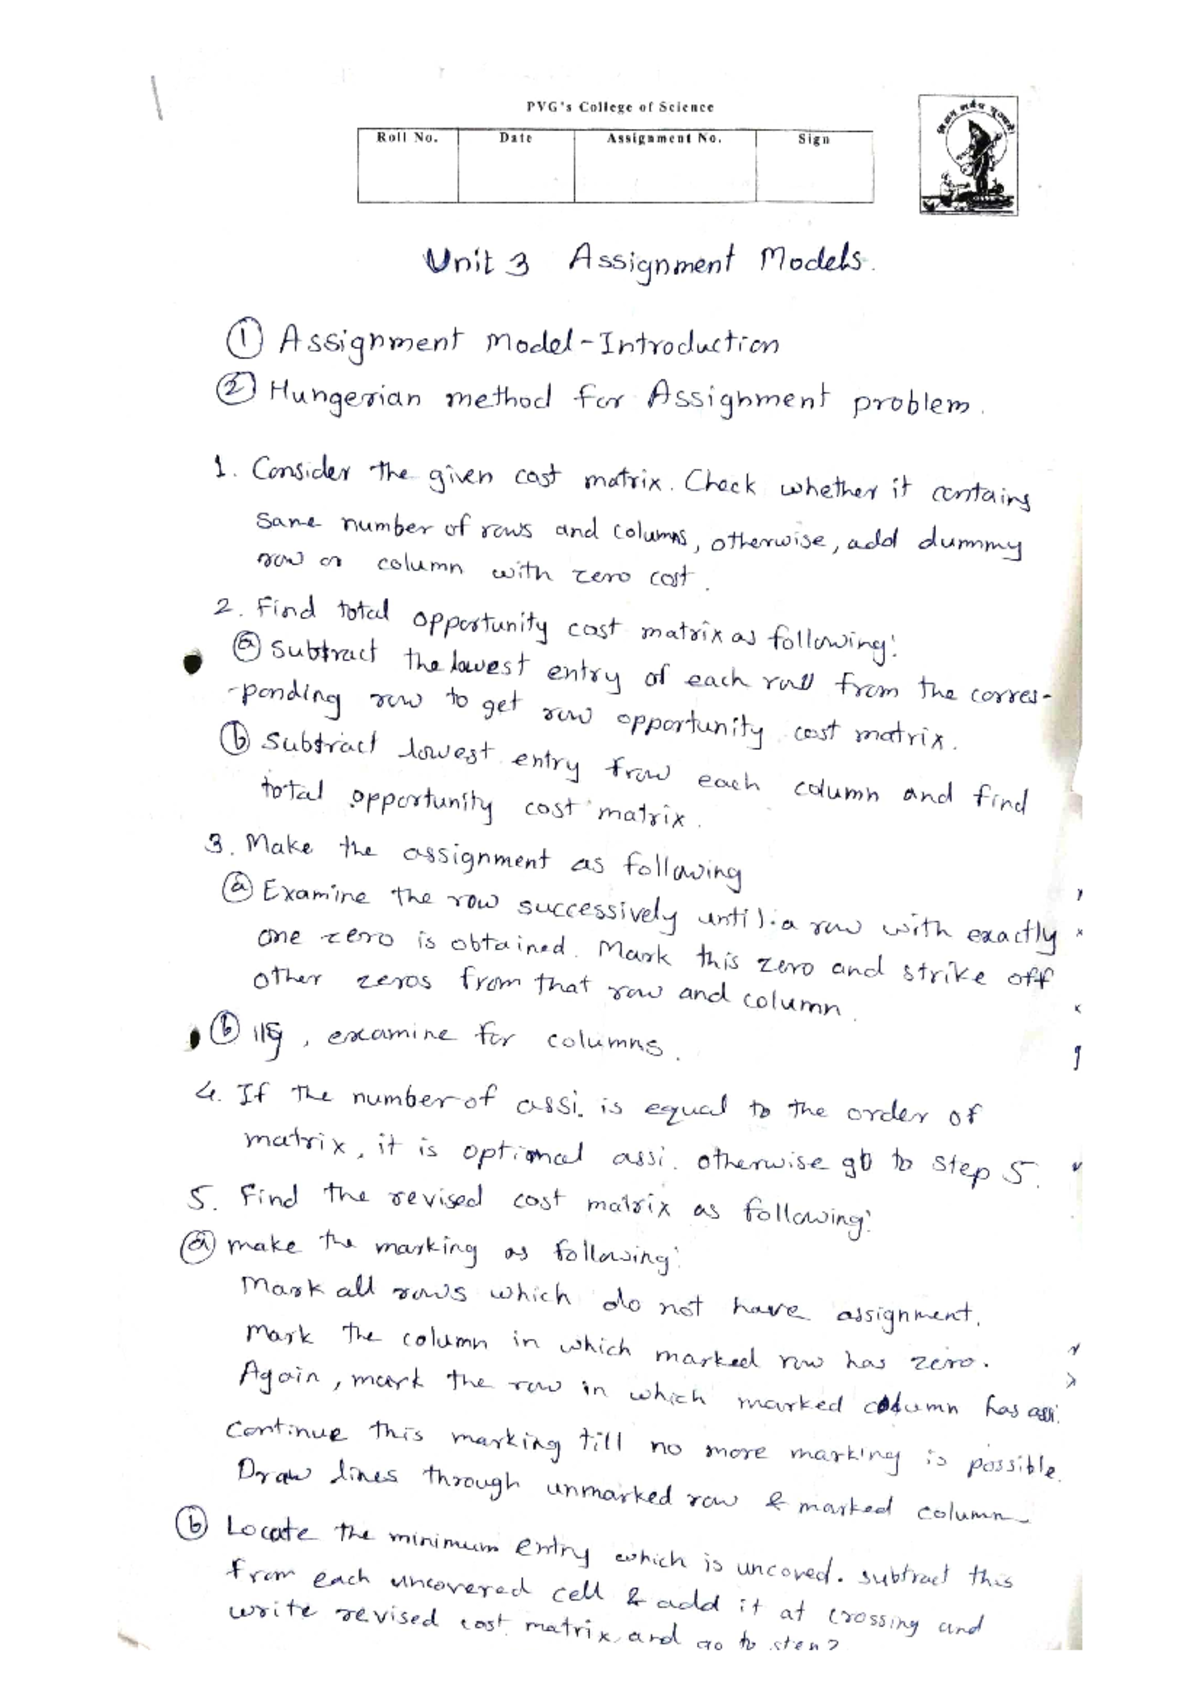 PVG's College of Science
Roll No. Date Assignment No. Sign
Unit 3 Assignment Models.
① Assignment Model-Introduction
② Hungerian method for Assignment problem.
1. Consider the given cost matrix. Check whether it contains
same number of rows and columns, otherwise, add dummy
row or column with zero cost.
2. Find total opportunity cost matrix as following:
ⓐ Subtract the lowest entry of each row from the corres-
-ponding row to get row opportunity cost matrix.
ⓑ Subtract lowest entry from each column and find
total opportunity cost matrix.
3. Make the assignment as following
ⓐ Examine the row successively until a row with exactly
one zero is obtained. Mark this zero and strike off
other zeros from that row and column.
ⓑ lly, examine for columns.
4. If the number of assi. is equal to the order of
matrix, it is optimal assi. otherwise go to step 5.
5. Find the revised cost matrix as following:
ⓐ make the marking as following:
Mark all rows which do not have assignment.
Mark the column in which marked row has zero.
Again, mark the row in which marked column has assi.
Continue this marking till no more marking is possible.
Draw lines through unmarked row & marked column-
ⓑ Locate the minimum entry which is uncoved. subtract this
from each uncovered cell & add it at crossing and
write revised cost matrix, and go to step